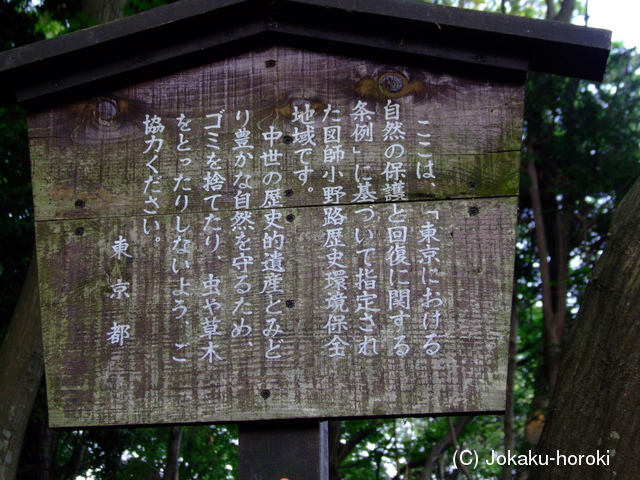 ここは、「東京における
自然の保護と回復に関する
条例」に基づいて指定され
た図師小野路歴史環境保全
地域です。
中世の歴史的遺産とみど
り豊かな自然を守るため、
ゴミを捨てたり、虫や草木
をとったりしないよう、ご
協力ください。
東京都
(C) Jokaku-horoki